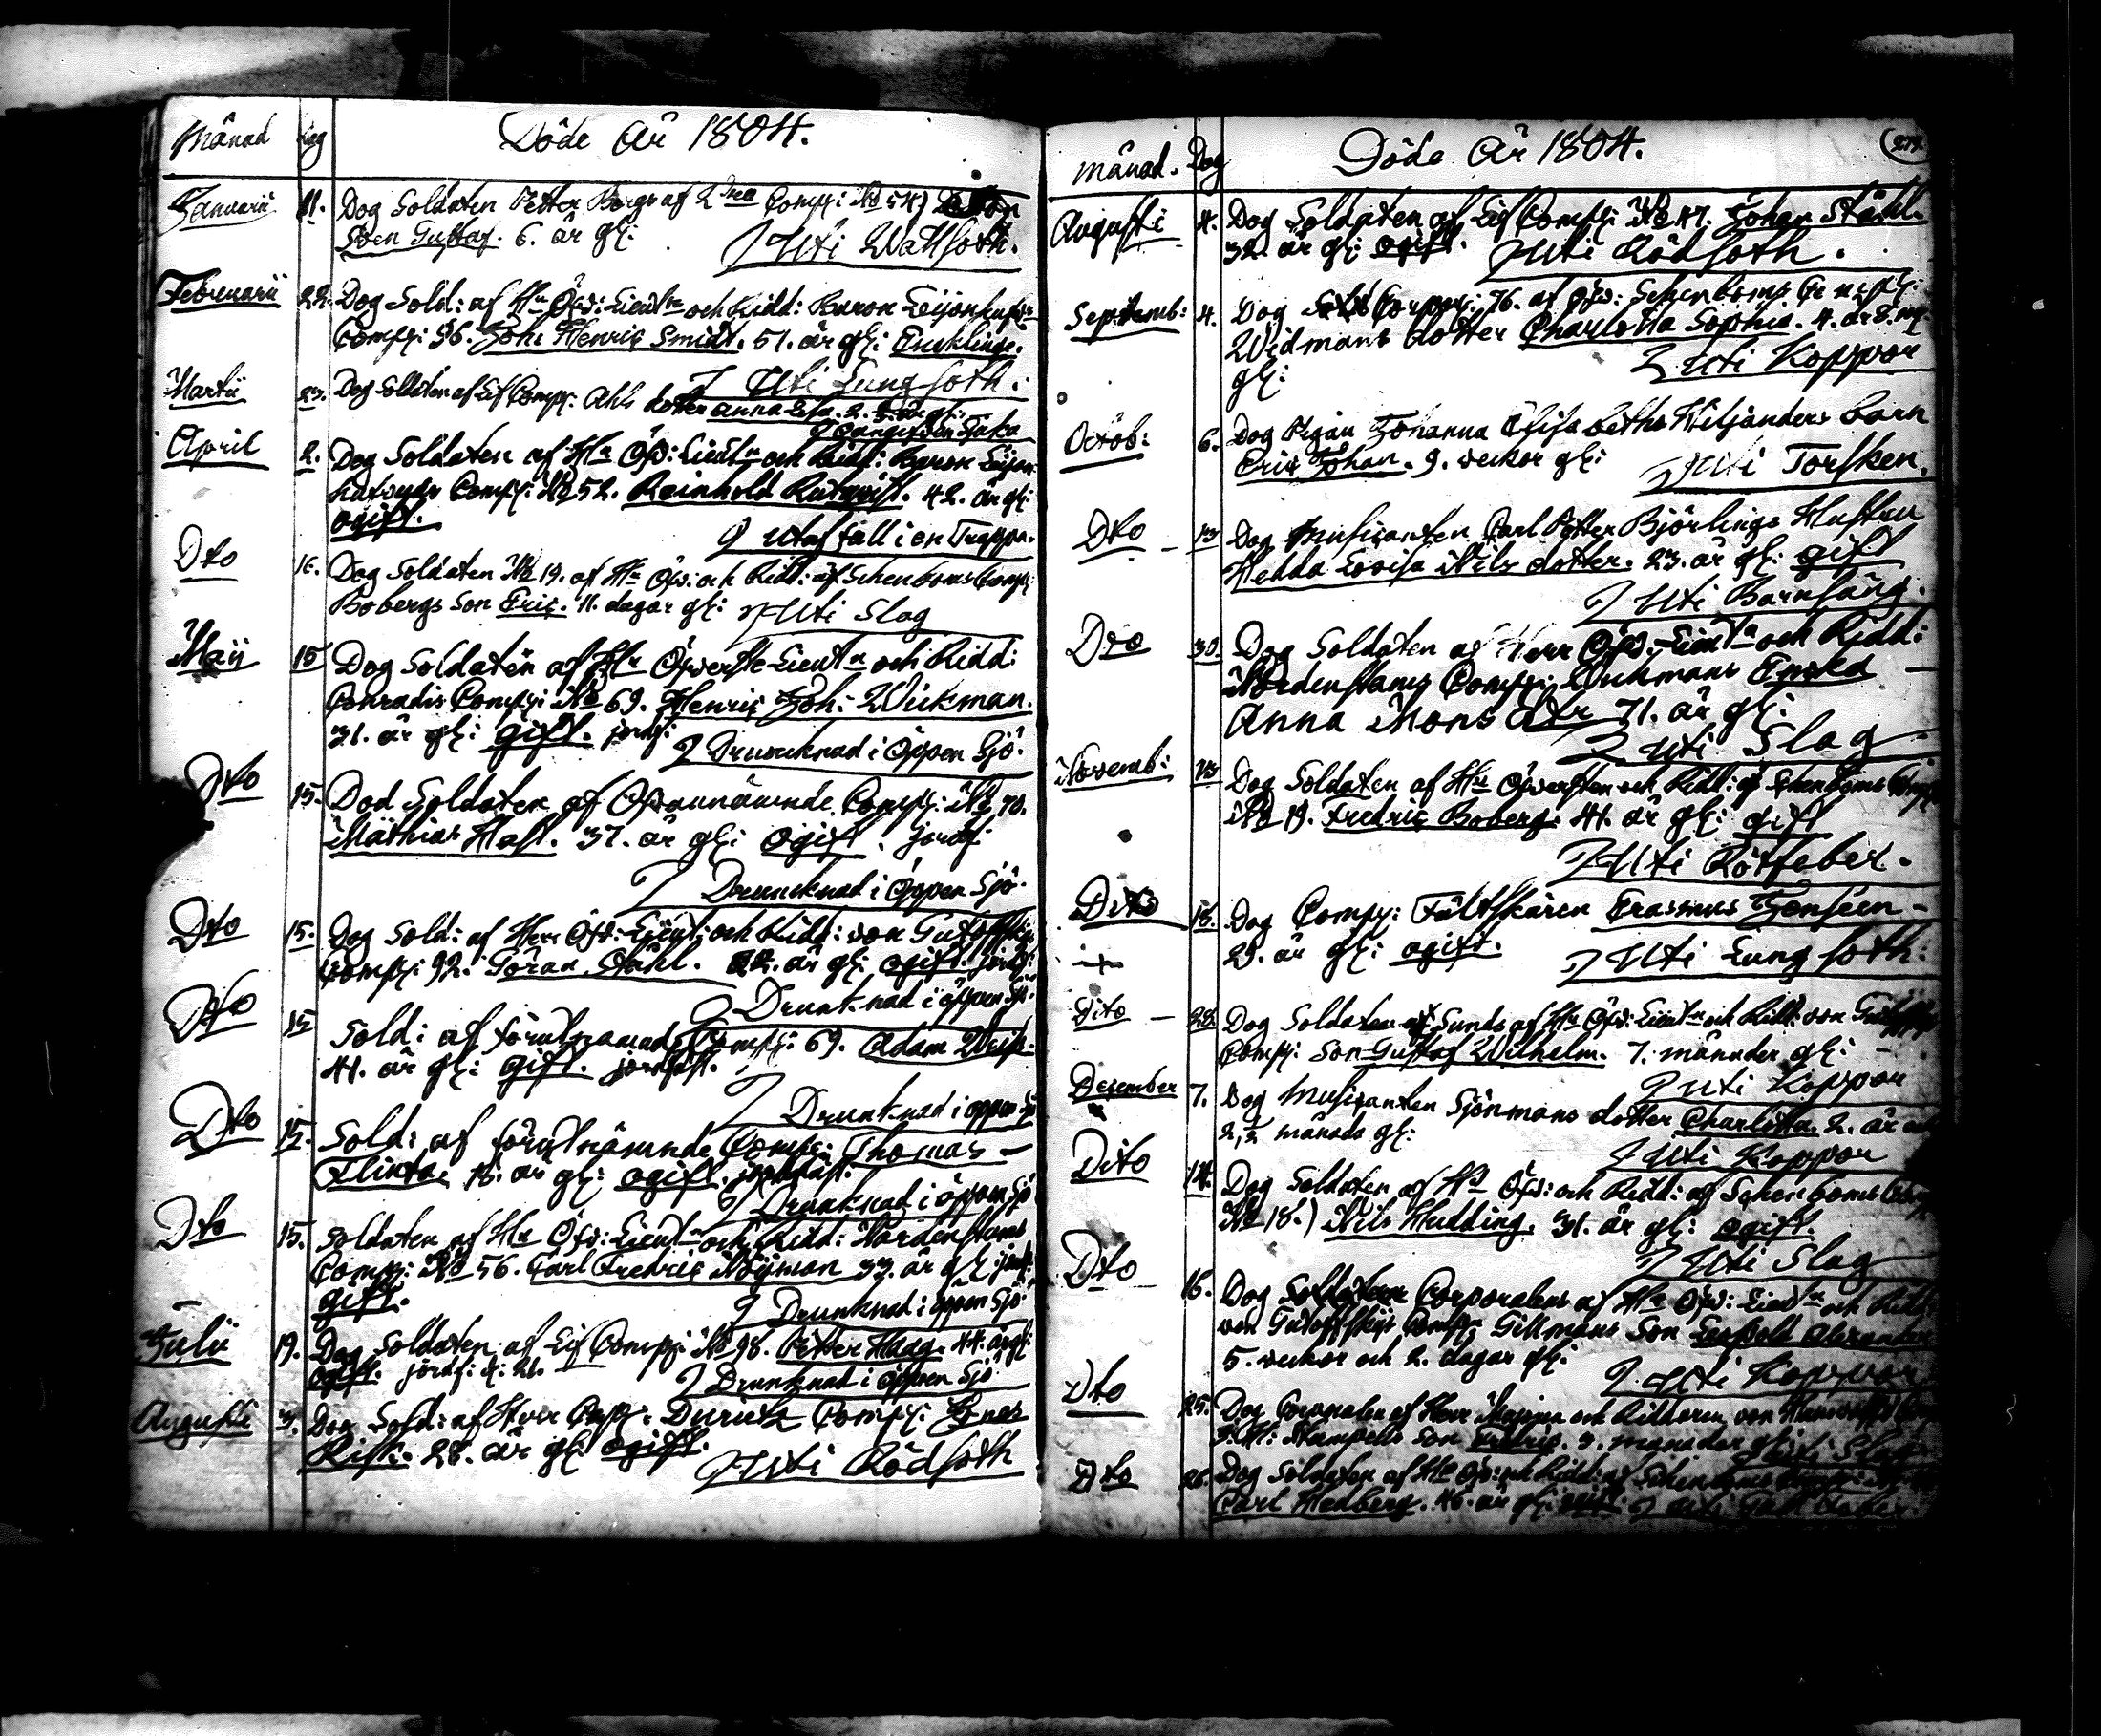 Månad Dag Döde År 1804.
Januarii 11. Dog Soldaten Petter Bergs af 2dra Comp: No 54)
Son Gustaf. 6. år gl:
Uti Wattsoth.
Februarii 22. Dog Sold: af Hr Öfv: Lieutn och Ridd: Baron Leijonhufv:
Comp: 96. Joh: Henric Smidt. 51. år gl: Encklinge.
Uti Lungsoth:
Martii 23. Dog Soldaten af Lif Comp: Ahls dotter Anna Lisa. 2. år gl:
April 2. Dog Soldaten af Hr Öfv: Lieutn och Ridd: Baron Leijon
hufvuds Comp: No 52. Reinhold Rutqvist. 42. år gl:
ogift.
utaf fall i en Trappa.
Dto 16. Dog Soldaten No 19. af Hr Öfv: och Ridd: af Schenboms Comp:
Bobergs Son Eric. 11. dagar gl:
Uti Slag
Maij 15 Dog Soldaten af Hr Öfverste Lieutn och Ridd:
Conradis Comp: No 69. Henric Joh: Wickman.
31. år gl: gift. jordf:
Druncknad i Öppen Sjö.
Dto 15. Dod Soldaten af Ofvannämnde Comp: No 70.
Mathias Hast. 37. år gl: Ogift. jordf:
Druncknad i Öppen Sjö.
Dto 15. Dog Sold: af Herr Öfv: Lieut: och Ridd: von Gutoffskijs
Comp: 92. Göran Ståhl. 22. år gl: ogift. jordf:
Drunknad i öppen Sjö.
Dto 15 Sold: af förutnämnde Comp: 69. Adam Weis.
41. år gl: gift. jordfäst.
Drunknad i öppen Sjö
Dto 15. Sold: af förutnämnde Comp: Thomas
Flinta. 18. år gl: ogift. jordfäst.
Drunknad i öppen Sjö
Dto 15. Soldaten af Hr Öfv: Lieutn och Ridd: Nordenstams
Comp: No 56. Carl Fredric Nöijman 33. år gl: jordf:
gift.
Drunknad i öppen Sjö
Julii 19. Dog Soldaten af Lif Comp: No 98. Petter Haag. 44. år gl:
ogift. jordf: d: 26.
Drunknad i öppen Sjö
Augusti 3. Dog Sold: af Herr Capt: Durietz Comp:
28. år gl: ogift.
Uti Rödsoth
månad. Dag Döde År 1804.
Augusti 4. Dog Soldaten af Lif Comp: No 47. Johan Ståhl.
32. år gl: ogift.
Uti Rödsoth.
Septemb: 4. Dog Corpor: 76. af Öfv: Schenboms Comp:
Widmans dotter Charlotta Sophia. 4. år 8. m:
gl:
Uti Koppor
Octob: 6. Dog Pigan Johanna Elisabetha Hiljanders barn
Eric Johan. 9. veckor gl:
Uti Torsken.
Dto 13 Dog Musicanten Carl Petter Björlings Hustru
Hedda Lovisa Nils dotter. 23. år gl: gift
Uti Barnsäng.
Dto 30. Dog Soldaten af Herr Öfv: Lieutn och Ridd:
Nordenstams Comp: Wickmans Encka
Anna Mons Dtr 71. år gl:
Uti Slag
Novemb: 13 Dog Soldaten af Hr Öfversten och Ridd: af Schenboms Comp:
No 19. Fredric Boberg. 41. år gl: gift
Uti Rötfeber.
Dito 18. Dog Comp: Fältskären Erasmus Jenseen
29. år gl: ogift.
Uti Lungsoth:
Dito 28. Dog Soldaten Sunds af Hr Öfv: Lieutn och Ridd: von
Comp: Son Gustaf Wilhelm. 7. månader gl:
Uti Koppor
December 7. Dog Musicanten Sjönmans dotter Charlotta. 2. år
månads gl:
Uti Koppor
Dito 14. Dog Soldaten af Hr Öfv: och Ridd: af Schenboms Comp:
No 18.) Nils Hudding. 31. år gl: ogift.
Uti Slag
Dto 16. Dog Corporalens af Hr Öfv: Lieutn och Ridd:
von Gutoffskijs Comp: Gillmans Son Leopold Alexander
5. veckor och 2. dagar gl:
Uti Koppor
Dto 25. Dog Corporalen af Herr Majoren och Riddaren von
Son Fredric. 3. månader gl:
Uti Slag
Dto 26. Dog Soldaten af Hr Öfv: och Ridd: af Schenboms
Carl Hedberg. 46. år gl: